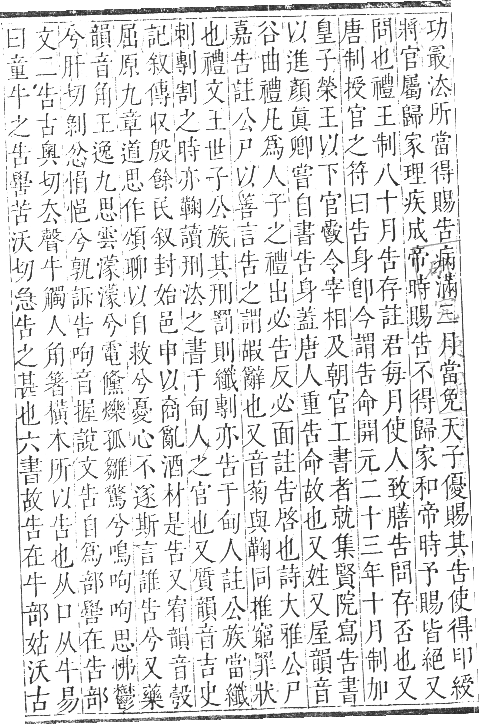 功最法所當得賜告病滿三月當免天子優賜其告使得印綬
將官屬歸家理疾成帝時賜告不得歸家和帝時予賜皆絕又
問也禮王制八十月告存註君每月使人致膳告問存否也又
唐制授官之符曰告身卽今謂告命開元二十三年十月制加
皇子榮王以下官爵令宰相及朝官工書者就集賢院寫告書
以進顏眞卿嘗自書告身蓋唐人重告命故也又姓又屋韻音
谷曲禮凡爲人子之禮出必告反必面註告啓也詩大雅公尸
嘉告註公尸以善言告之謂嘏辭也又音菊與鞠同推窮罪狀
也禮文王世子公族其刑罰則纖剸亦告于甸人註公族當纖
刺剸割之時亦鞠讀刑法之書于甸人之官也又質韻音吉史
記叙傳収殷餘民叙封始邑申以商亂酒材是告又宥韻音彀
屈原九章道思作頌聊以自救兮憂心不遂斯言誰告兮又藥
韻音角王逸九思雲濛濛兮電儵爍孤雛驚兮鳴呴呴思怫鬱
兮肝切剝忿悁悒兮孰訴告呴音握說文告自爲部嚳在告部
文二告古奧切去聲牛觸人角箸橫木所以告也从口从牛易
曰童牛之告嚳苦沃切急告之甚也六書故告在牛部姑沃古